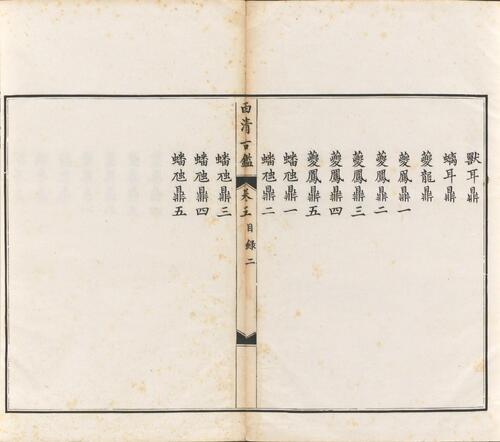 獸耳鼎
螭耳鼎
夔龍鼎
夔鳳鼎一
夔鳳鼎二
夔鳳鼎三
夔鳳鼎四
夔鳳鼎五
蟠虺鼎一
蟠虺鼎二
西清古鑑 卷五 目錄 二
蟠虺鼎三
蟠虺鼎四
蟠虺鼎五